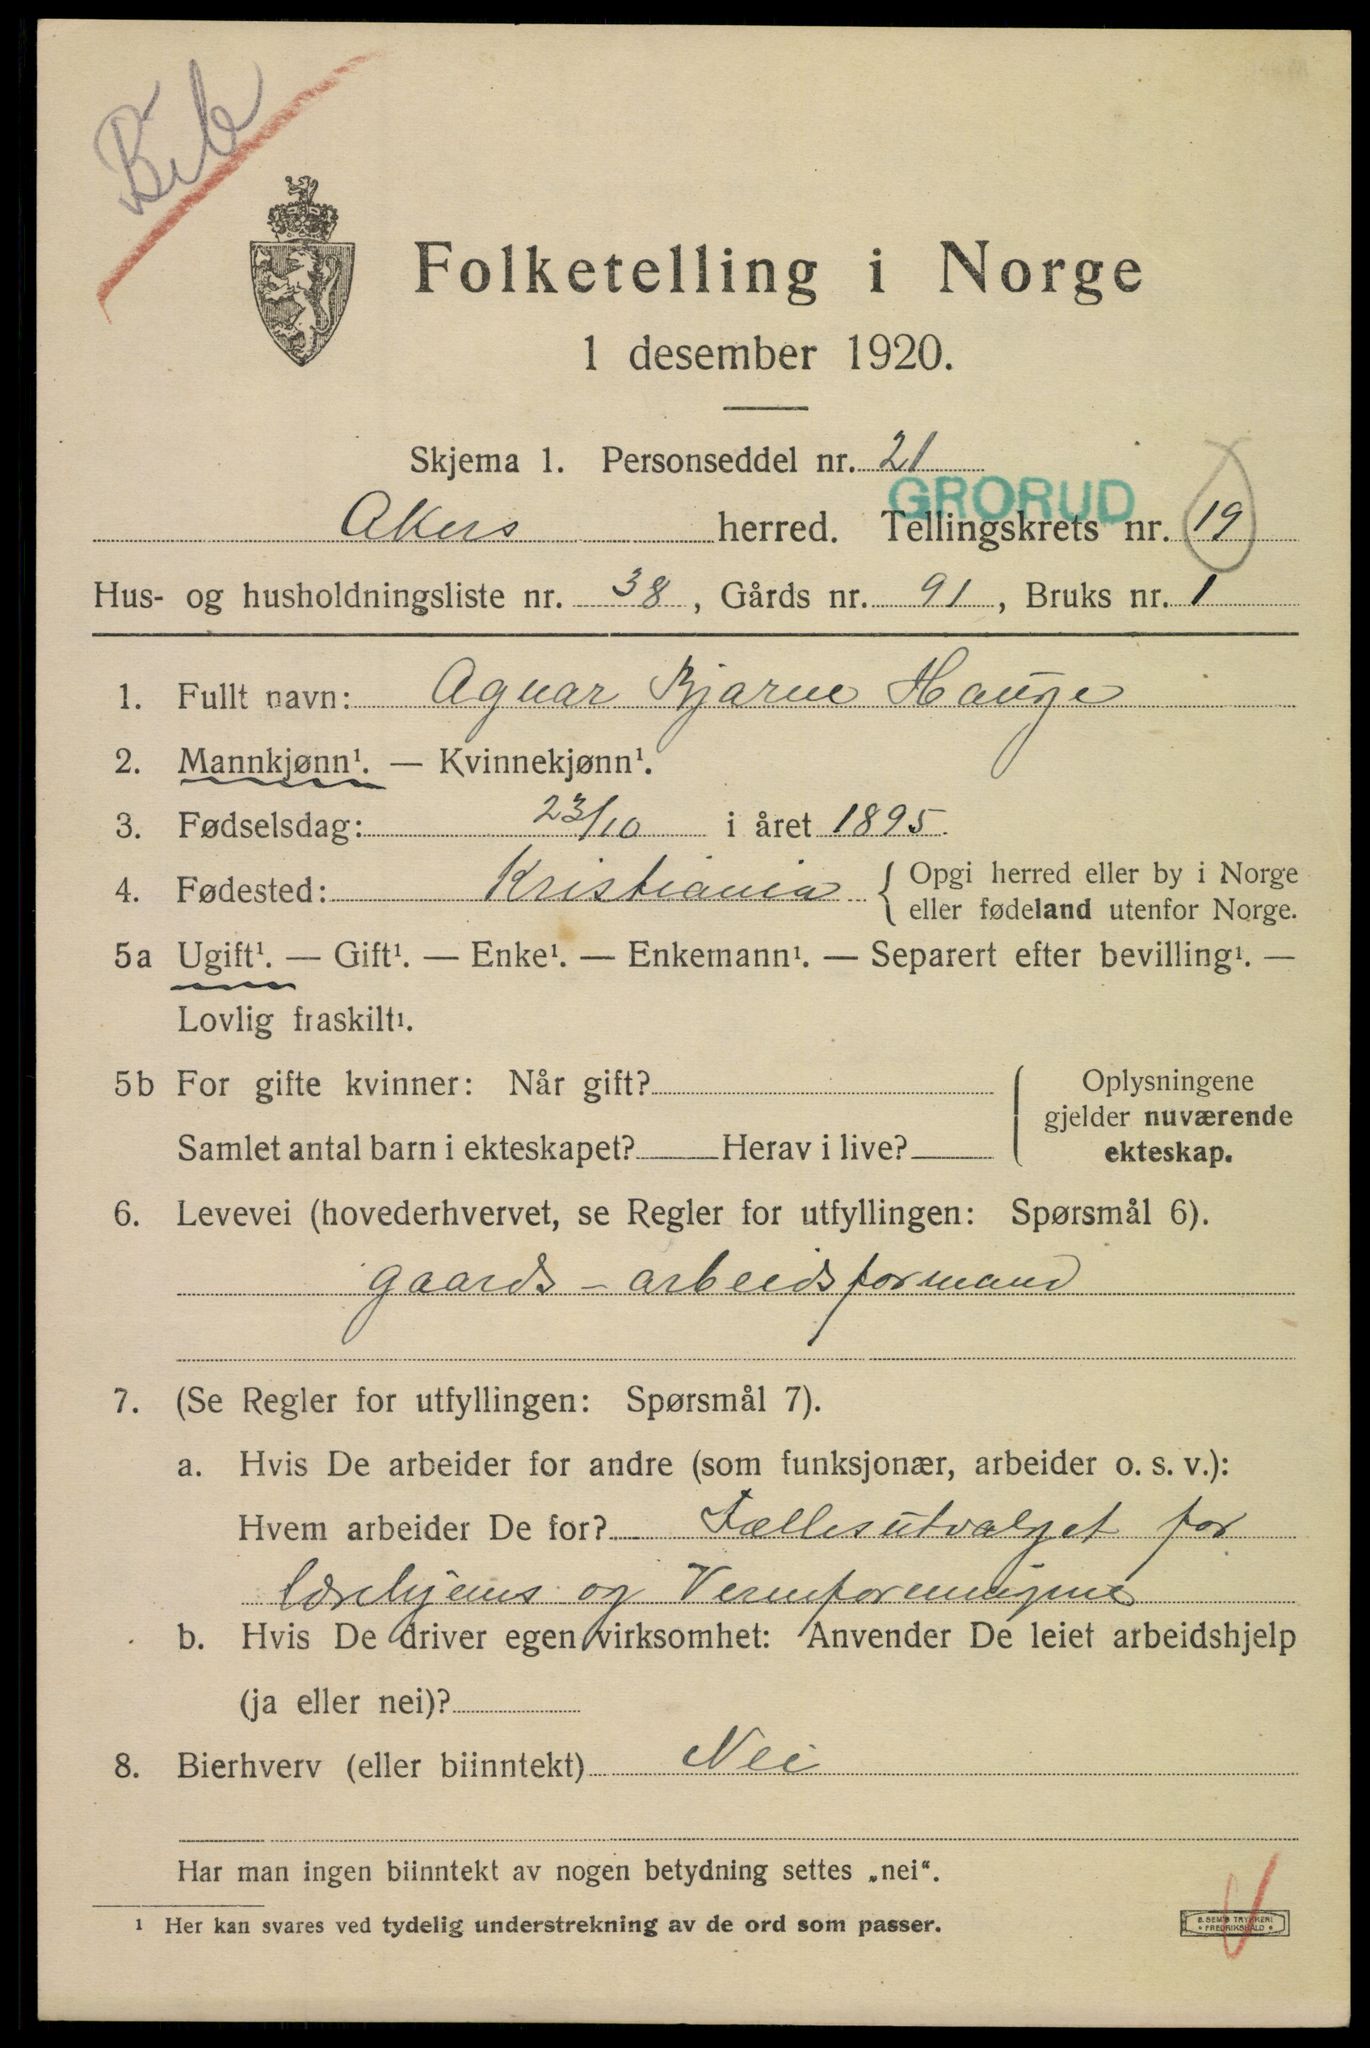 Folketelling i Norge
1 desember 1920.
Skjema 1. Personseddel nr. 21
GRORUD
Akers herred. Tellingskrets nr. 19
Hus- og husholdningsliste nr. 38, Gårds nr. 91, Bruks nr. 1
1. Fullt navn: Agnar Bjarne Hauge
2. Mannkjønn¹. — Kvinnekjønn¹.
3. Fødselsdag: 23/10 i året 1895.
4. Fødested: Kristiania { Opgi herred eller by i Norge
eller fødeland utenfor Norge.
5a Ugift¹. — Gift¹. — Enke¹. — Enkemann¹. — Separert efter bevilling¹. —
Lovlig fraskilt¹.
5b For gifte kvinner: Når gift?
Samlet antal barn i ekteskapet? Herav i live?
Oplysningene
gjelder nuværende
ekteskap.
6. Levevei (hovederhvervet, se Regler for utfyllingen: Spørsmål 6).
gaards - arbeidsformand
7. (Se Regler for utfyllingen: Spørsmål 7).
a. Hvis De arbeider for andre (som funksjonær, arbeider o. s. v.):
Hvem arbeider De for? Fællesutvalget for
og
b. Hvis De driver egen virksomhet: Anvender De leiet arbeidshjelp
(ja eller nei)?
8. Bierhverv (eller biinntekt) Nei
Har man ingen biinntekt av nogen betydning settes „nei“.
¹ Her kan svares ved tydelig understrekning av de ord som passer.
E. SEM'S TRYKKERI
FREDRIKSHALD